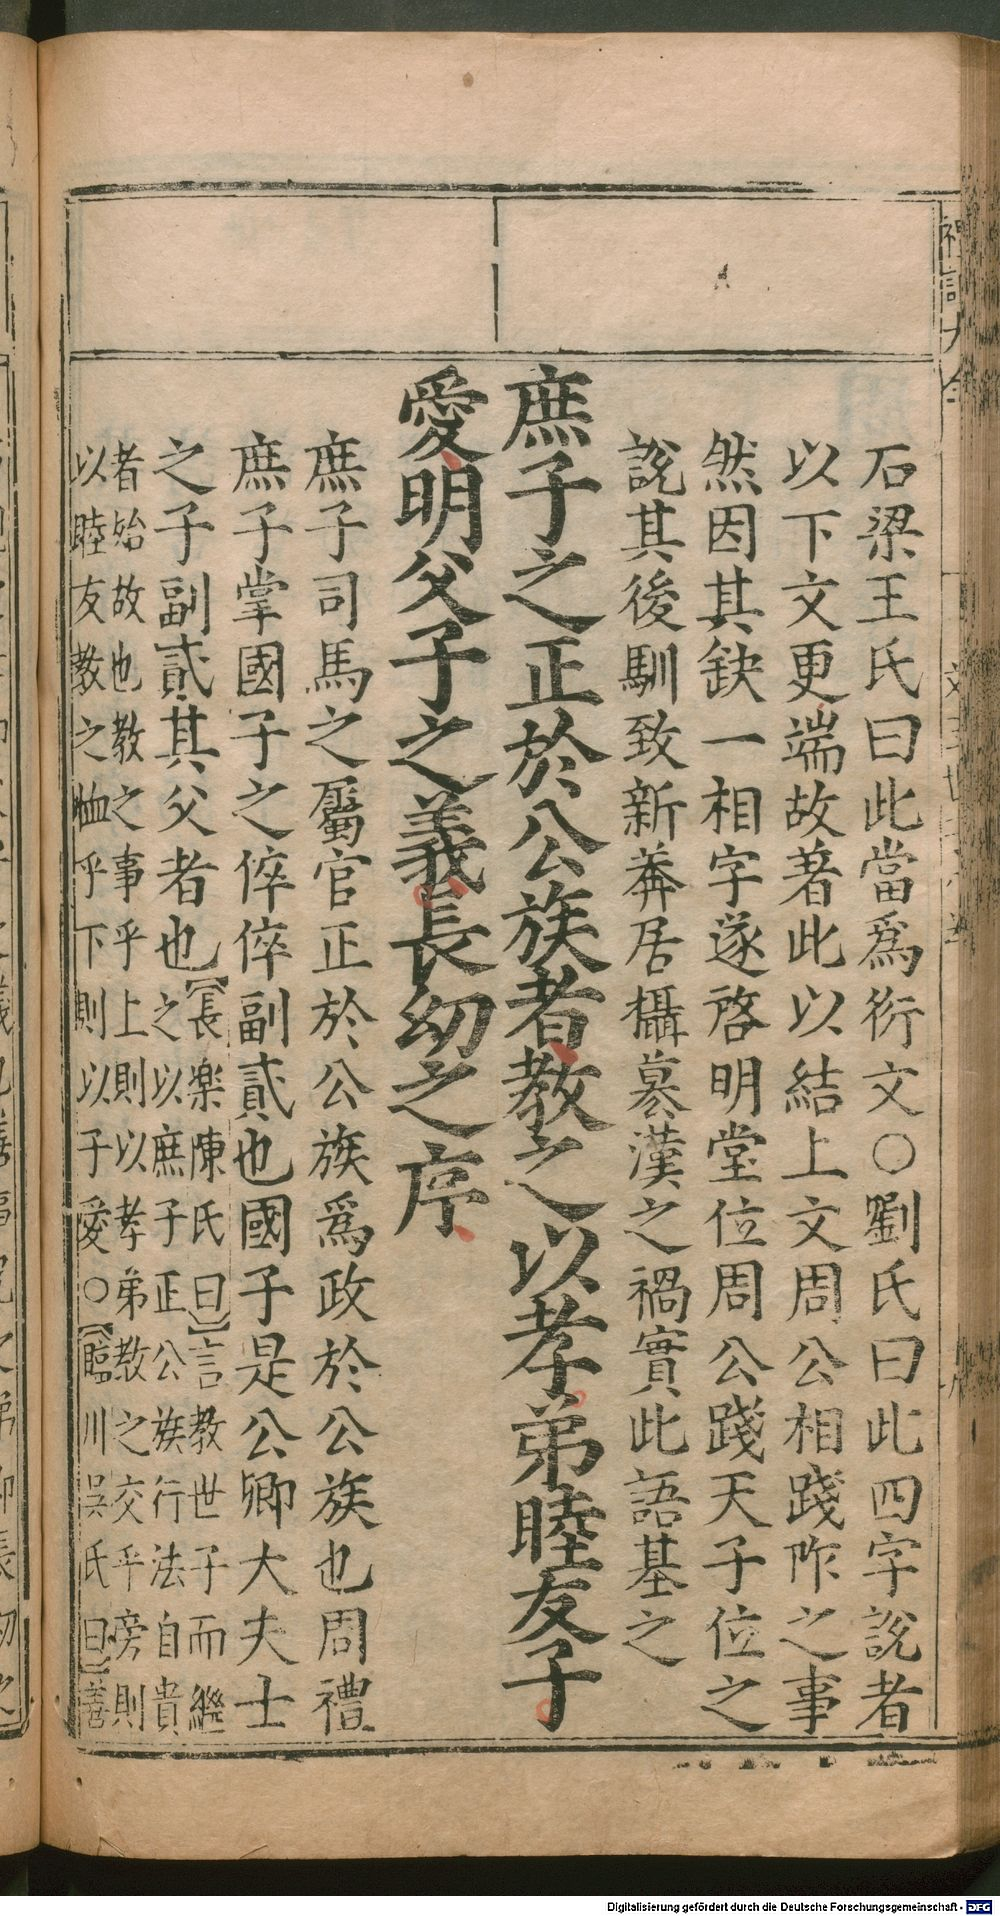 石梁王氏曰此當爲衍文○劉氏曰此四字說者
以下文更端故著此以結上文周公相踐阼之事
然因其缺一相字遂啓明堂位周公踐天子位之
說其後馴致新莽居攝簒漢之禍實此語基之
庶子之正於公族者教之以孝弟睦友子
愛明父子之義長幼之序
庶子司馬之屬官正於公族爲政於公族也周禮
庶子掌國子之倅倅副貳也國子是公卿大夫士
之子副貳其父者也【長楽陳氏曰】言教世子而繼
之以庶子正公族行法自貴
者始故也教之事乎上則以孝弟教之交乎旁則
以睦友教之恤乎下則以子愛○【臨川吳氏曰】善
Digitalisierung gefördert durch die Deutsche Forschungsgemeinschaft - DFG